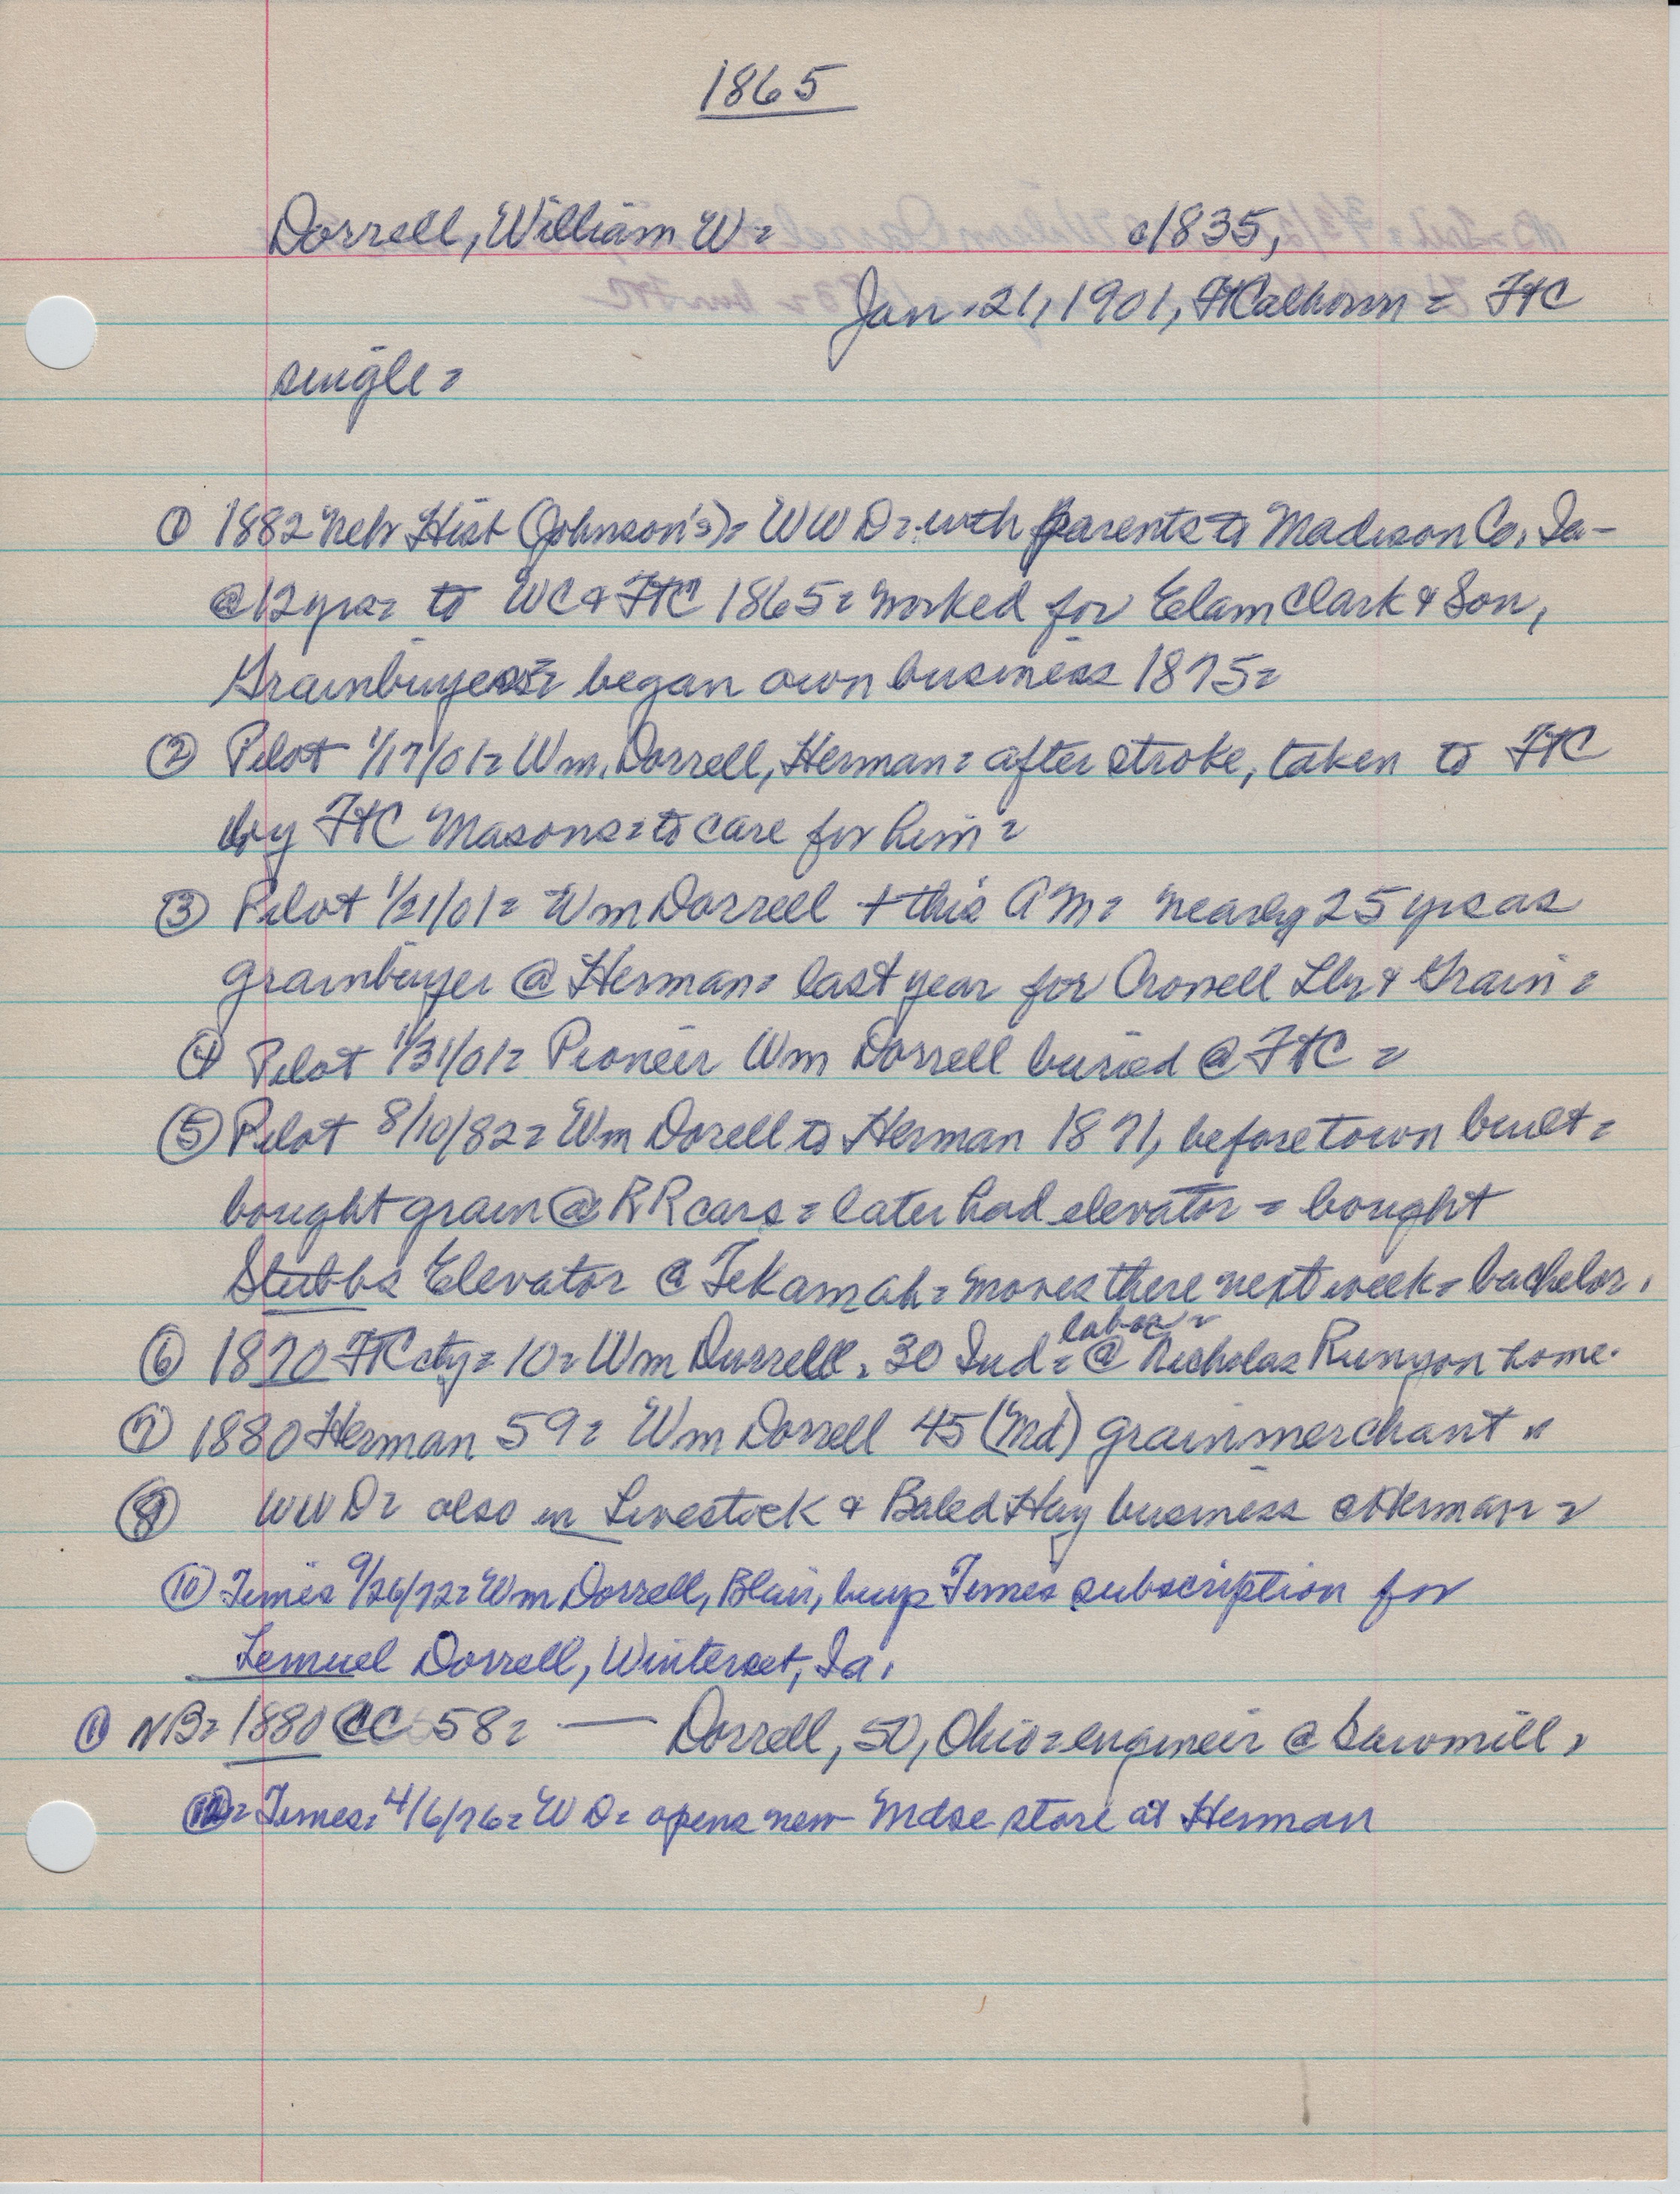 1865
Dorrell, William W= c1835,
Jan. 21, 1901, FtCalhoun = FtC
single=
① 1882 Nebr Hist (Johnson's)= WWD= with parents to Madison Co, Ia-
@12yrs= to WC & FtC 1865= worked for Elam Clark & Son,
Grainbuyers= began own business 1875=
② Pilot 1/17/01= Wm. Dorrell, Herman= after stroke, taken to FtC
by FtC Masons= to care for him=
③ Pilot 1/21/01= Wm Dorrell + this AM= nearly 25 yrs as
grainbuyer @ Herman= last year for Crowell Lbr & Grain=
④ Pilot 1/31/01= Pioneer Wm Dorrell buried @ FtC=
⑤ Pilot 8/10/82= Wm Dorell to Herman 1871, before town built=
bought grain @ RR cars= later had elevator= bought
Stubbs Elevator @ Tekamah= moves there next week= bachelor.
labor=
⑥ 1870 FtC cty= 10= Wm Durrell, 30 Ind= @ Nicholas Runyon home.
⑦ 1880 Herman 59= Wm Dorrell 45 (Md) grainmerchant=
⑧ WWD= also in Livestock & Baled Hay business @ Herman=
⑩ Times 9/26/72= Wm Dorrell, Blair, buys Times subscription for
Lemuel Dorrell, Winterset, Ia.
NB= 1880 CC 58= — Dorrell, 50, Ohio= engineer @ Sawmill=
⑫= Times= 4/6/76= WD= opens new Mdse store at Herman